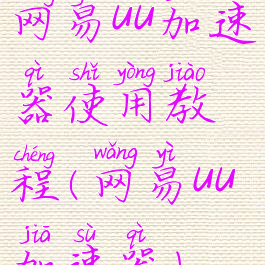 网易UU加速
qì shǐ yòng jiào
器使用教
chéng wǎng yì
程(网易UU
jiā sù qì
加速器)